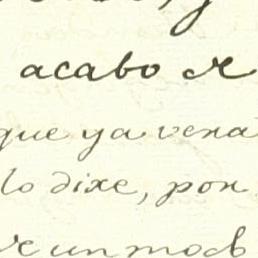 acabo de
que ya vena
lo dixe, por
un mod